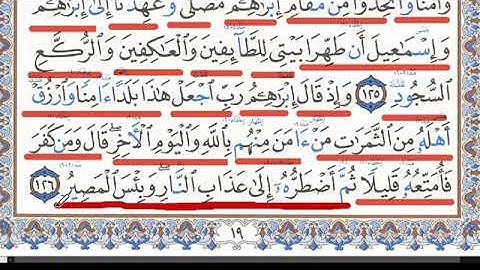 وَأَمْنًا وَاتَّخِذُوا مِن مَّقَامِ إِبْرَٰهِۦمَ مُصَلًّى وَعَهِدْنَا إِلَىٰ إِبْرَٰهِۦمَ
وَإِسْمَاعِيلَ أَن طَهِّرَا بَيْتِيَ لِلطَّائِفِينَ وَالْعَاكِفِينَ وَالرُّكَّعِ
السُّجُودِ ١٢٥ وَإِذْ قَالَ إِبْرَٰهِۦمُ رَبِّ اجْعَلْ هَٰذَا بَلَدًا ءَامِنًا وَارْزُقْ
أَهْلَهُۥ مِنَ الثَّمَرَٰتِ مَنْ ءَامَنَ مِنْهُم بِاللَّهِ وَالْيَوْمِ الْأَخِرِ قَالَ وَمَن كَفَرَ
فَأُمَتِّعُهُۥ قَلِيلًا ثُمَّ أَضْطَرُّهُۥٓ إِلَىٰ عَذَابِ النَّارِ وَبِئْسَ الْمَصِيرُ ١٢٦
١٩